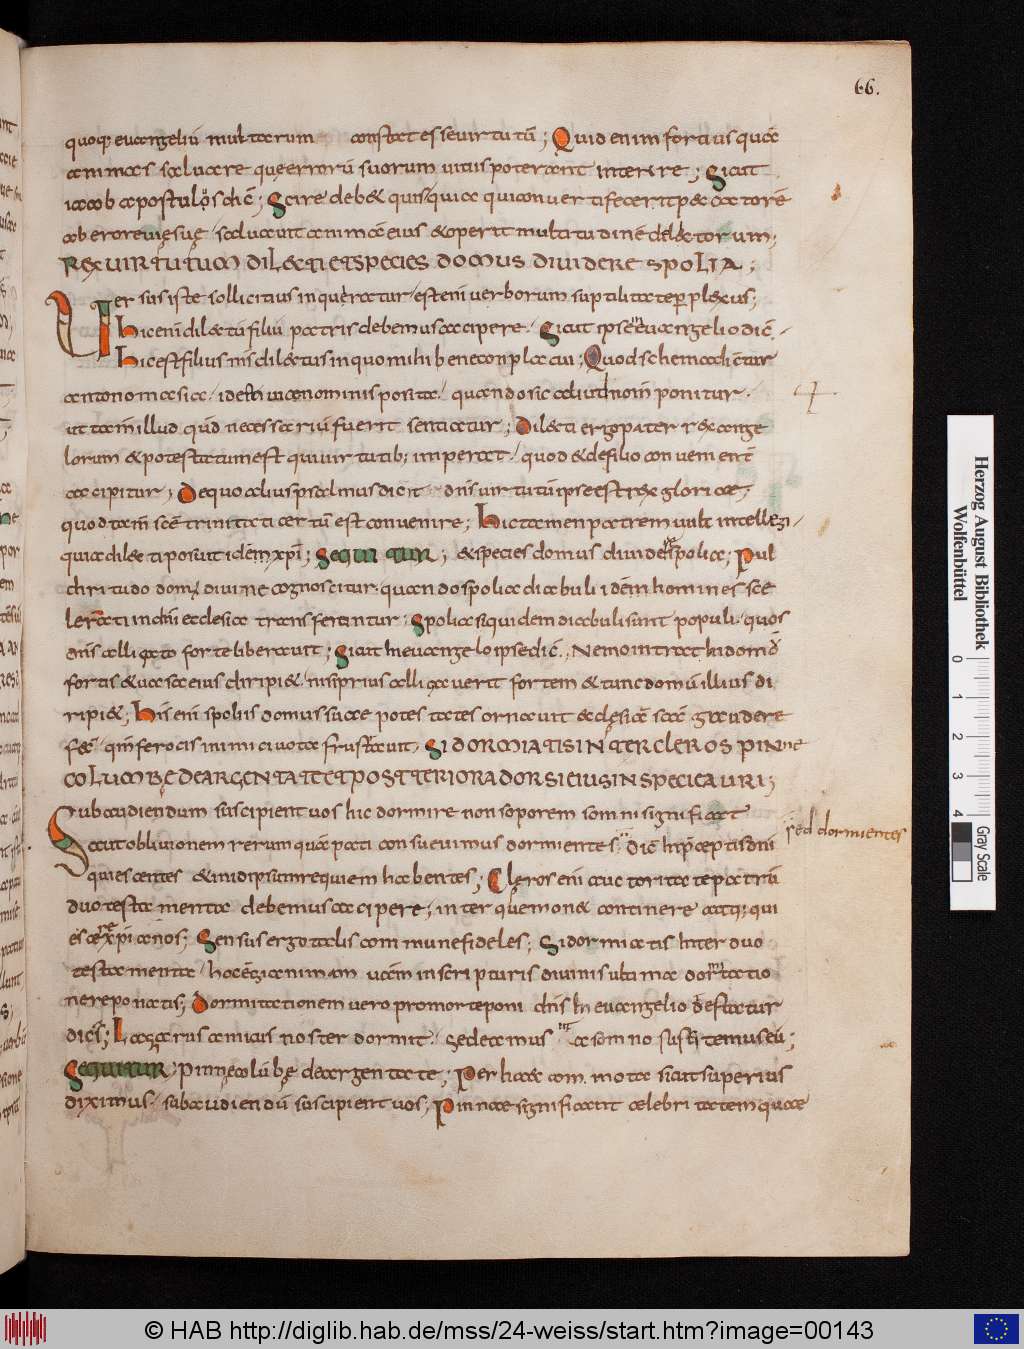 66.
quoq; euangeliū multarum constat esse uirtutū; Quid enim fortius quā
animas saluare quę errorū suorum uitiis poterant interire; Sicut
iacob apostulꝰ dic̄; Scire deb& quis quia qui conuerti fecerit peccatorē
ab erore uię suę saluauit animā eius &operit multitudinē delictorum;
REX UIRTUTUM DILECTI ET SPECIES DOMUS DIUIDERE SPOLIA;
Uersus iste sollicitius inquęratur est enī uerborum suptilitate perplexus;
hic enī dilectū filiū patris debemus accipere. Sicut ipse in euangelio dic̄.
hic est filius ms̄ dilectus in quo mihi bene conplacui; Quod schema dicitur
antonomasia. id est uice nominis posita. quando sic aliud nom̄ ponitur.
ut tam̄ illud quid necessariū fuerit sentiatur; Dilecti ergo pater rex ange
lorum &potestatum est qui uirtutib; imperat. quod &de filio conuenienť
accipitur; De quo alius psalmus dicit dn̄s uirtutū ipse est rex gloriae,
quod tam̄ sc̄e trinitati certū est conuenire; hic tamen patrem uult intellegi.
quia dilecti posuit idem xp̄i; Sequitur; &species domus diuidere spolia; Pul
chritudo domꝰ diuine agnoscitur. quando spolia diabuli idēm homines sc̄e
lerati in dn̄i ecclesia transferuntur. Spolia siquidem diabuli sunt populi. quos
dn̄s alligato forte liberauit; Sicut In euangelo ipse dic̄. Nemo intrat In domū
fortis &uasa eius diripi&. nisi prius alligauerit fortem &tunc domū illius di
ripi&; His enī spoliis domus suae potestates ornauit ecclesiā sc̄ā gaudere
fec̄ qm̄ ferocis inimici uota frustrauit. SI DORMIATIS INTER CLEROS PINne
COLUMBĘ DEARGENTATE ET POSTERIORA DORSI EIUS IN SPECIE AURI;
Subaudiendum suscipient uos hic dormire non soporem somni significat
Aut obliuionem rerum quā pati consueuimus dormientes. Dic̄ In p̄ceptis dn̄i
sed dormientes
quiescentes &in id ipsum requiem habentes; Cleros enī auctoritate patrū
duo testamenta debemus accipere; inter quem on& continere atq; qui
escere xp̄ianos; Sensus ergo talis communi fideles; Si dormiatis Inter duo
testamenta. hoc est si animam ur̄am in scripturis diuinis ultima dormitatio
ne reponatis; Dormitationem uero pro morte poni dn̄s In euangelio testatur
dicens; Lazarus amicus noster dormit. Sed eamus ut a somno suscitemus eū;
Sequitur; Pinnę colūbę deargentate; Per haec commota sicut superius
diximus. subaudiendū suscipient uos; Pinnae significant celebritatem quae
Herzog August Bibliothek
Wolfenbüttel
0 1 2 3 4
Gray Scale
© HAB http://diglib.hab.de/mss/24-weiss/start.htm?image=00143